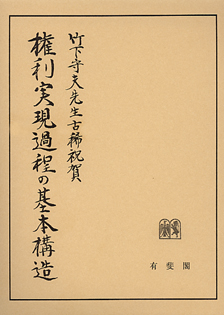 竹下守夫先生古稀祝賀
権利実現過程の基本構造
有斐閣